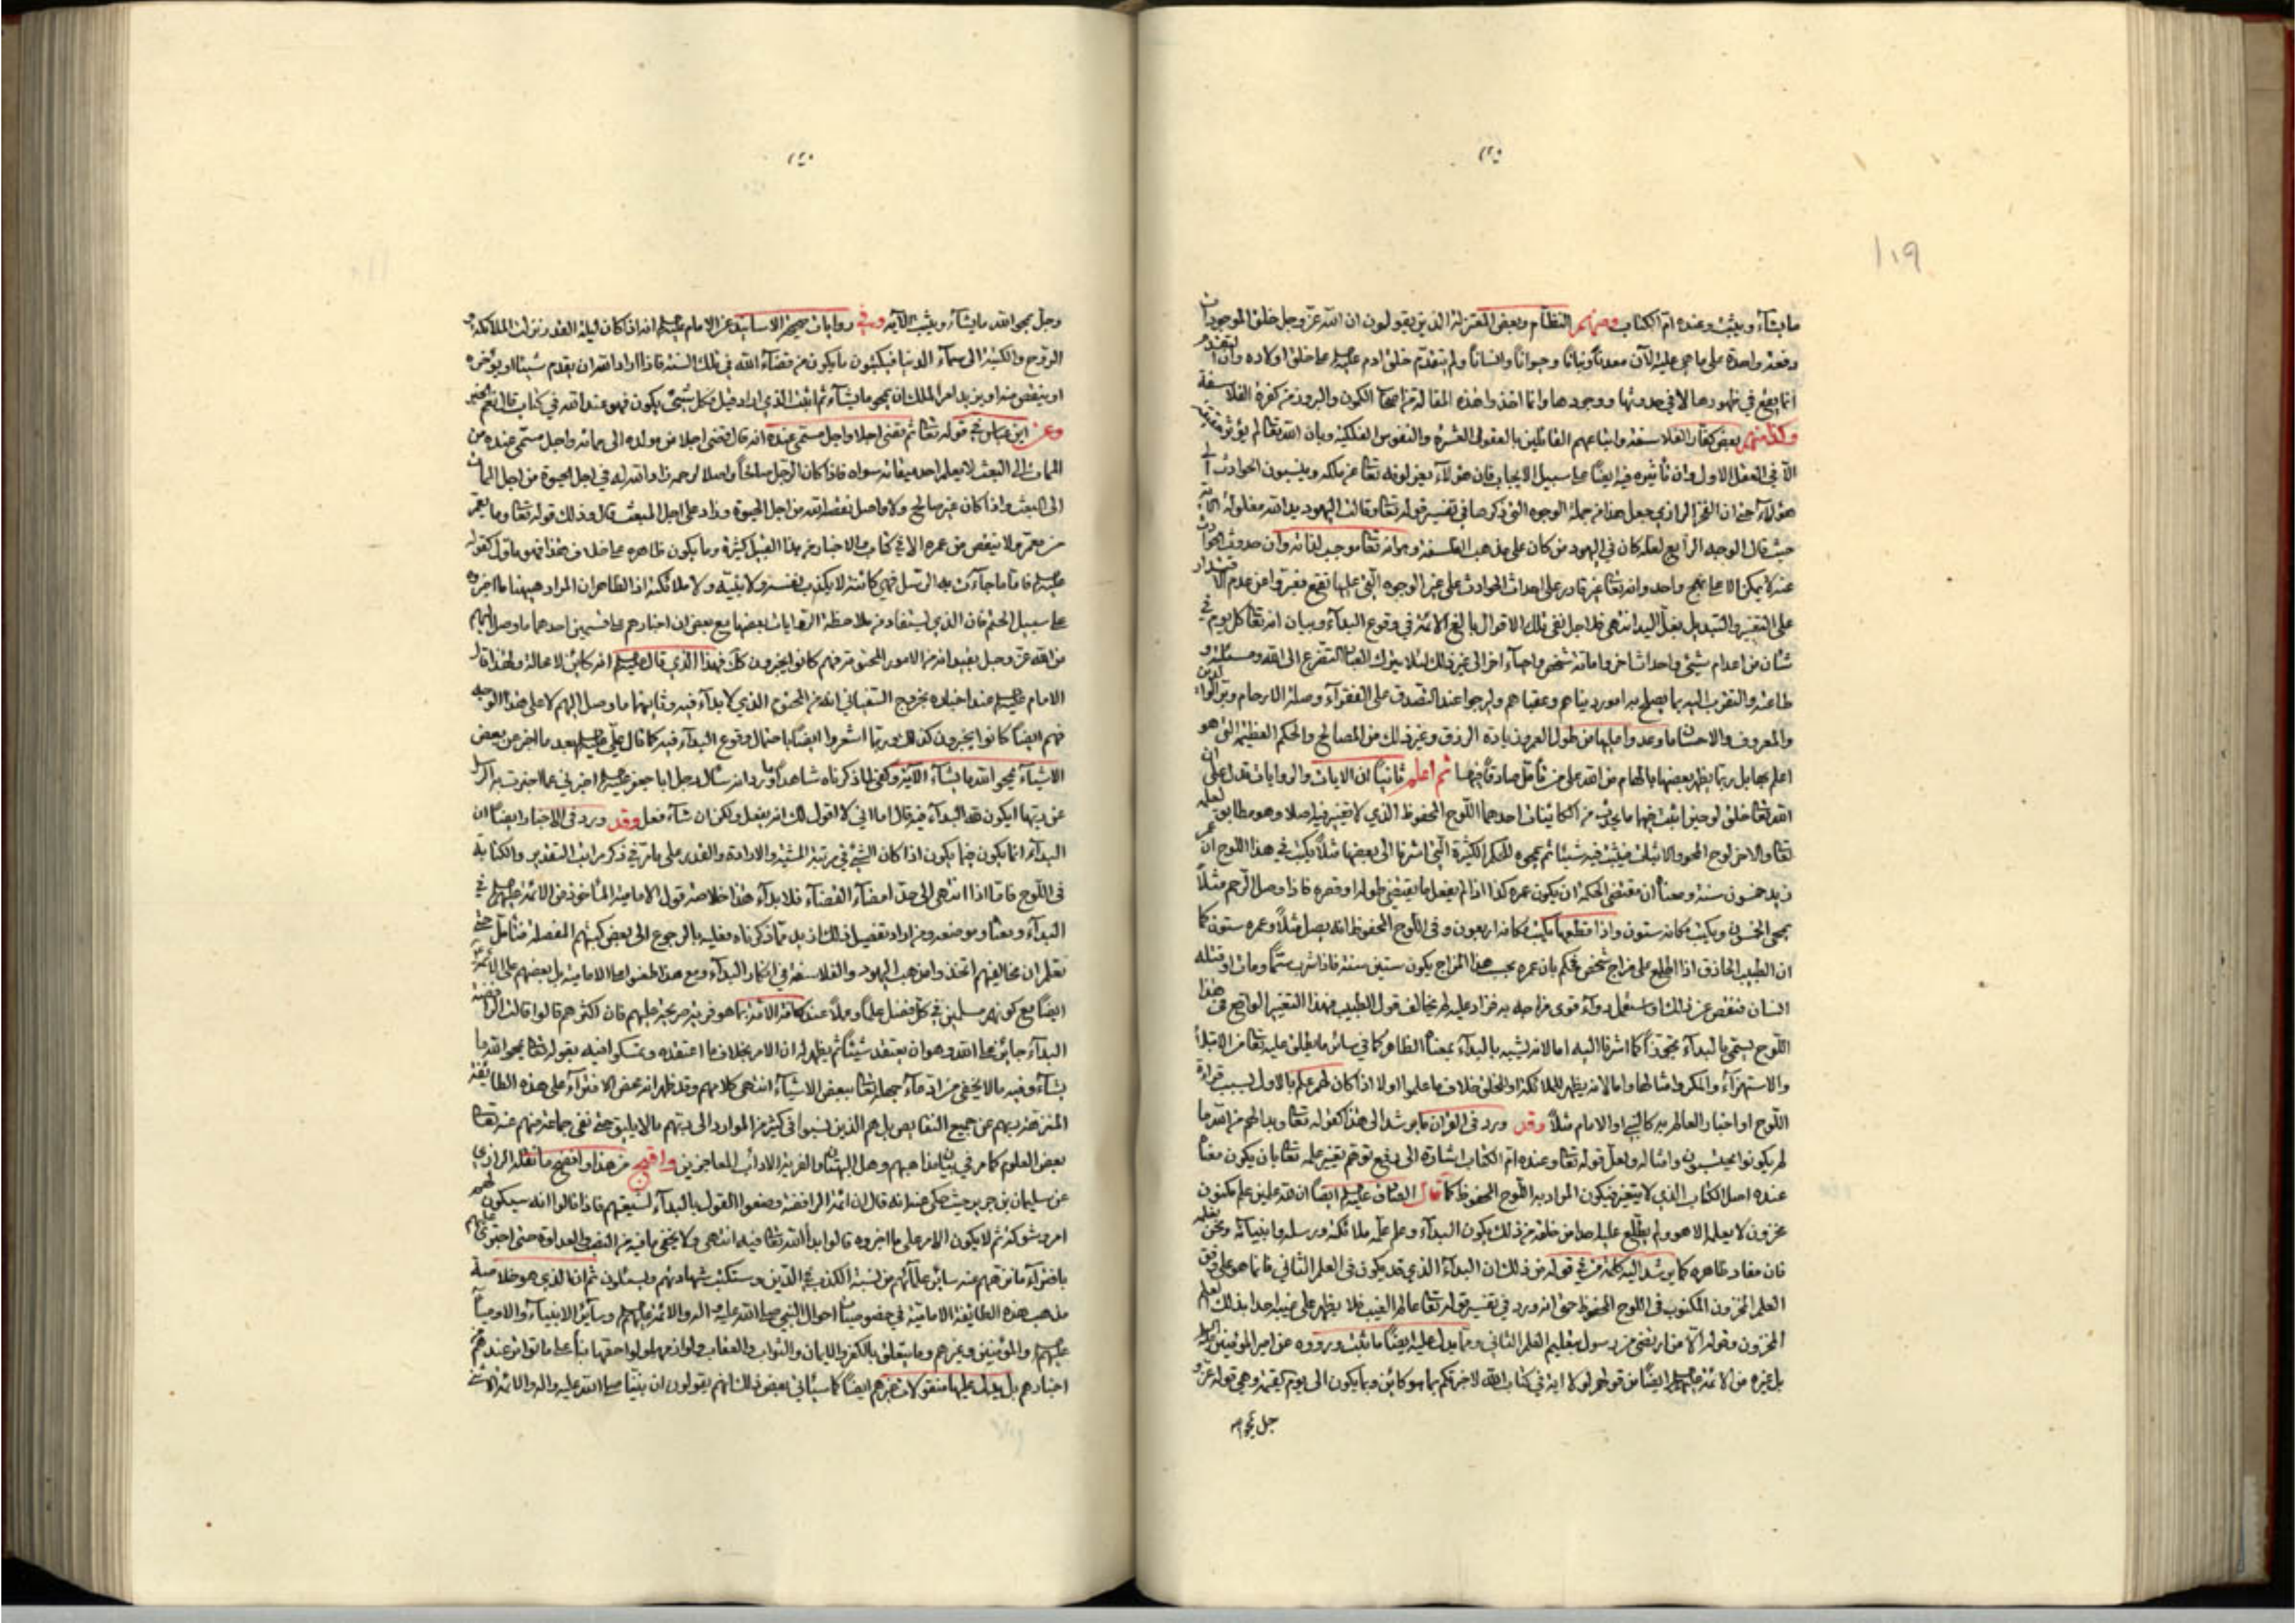 ١٢٠
١٠٩
ما يشآء ويثبت وعنده ام الكتاب ومنهم النظام وبعض المعتزلة الذين يقولون ان الله عز وجل خلق الموجودات
دفعة واحدة على ما هي عليه الآن معدناً ونباتاً وحيواناً وانساناً ولم يتقدم خلق ادم عليلم على خلق اولاده وان التقدم
انما يقع في ظهورها لا في حدوثها ووجودها وانما اخذوا هذه المقالة من اصحاب الكون والبروز من كفرة الفلاسفة
وكذا منهم بعض كفار الفلاسفة واتباعهم القائلين بالعقول العشرة والنفوس الفلكية وبان الله تعالى لم يؤثر حقيقة
الا في العقل الاول وان تأثيره فيه ايضاً على سبيل الايجاب فان هولآء يعزلونه تعالى عن ملكه وينسبون الحوادث الى
هؤلآء حتى ان الفخر الرازي جعل هذا من جملة الوجوه التي ذكرها في تفسير قوله تعالى وقالت اليهود يد الله مغلولة الآية
حيث قال الوجه الرابع لعله كان في اليهود من كان على مذهب الفلسفة وهو انه تعالى موجب لذاته وان حدوث الحوادث
عنه لا يمكن الا على نهج واحد وانه تعالى غير قادر على احداث الحوادث على غير الوجوه التي عليها تقع فعبروا عن عدم الاقتدار
على التغيير والتبديل بغل اليد انتهى فلاجل نفي تلك الاقوال بالغ الائمة في وقوع البدآء وبيان انه تعالى كل يوم في
شان من اعدام شيئ واحداث اخر واماتة شخص واحيآء اخر الى غير ذلك لئلا يترك العباد التضرع الى الله ومسئلته و
طاعته والتقرب اليه بما يصلح به امور دنياهم وعقباهم وليرجوا عند التصدق على الفقرآء وصلة الارحام وبر الوالدين
والمعروف والاحسان ما وعدوا عليها من طول العمر وزيادة الرزق وغير ذلك من المصالح والحكم العظيمة التي هو
اعلم بها بل ربما يظهر بعضها بالهام من الله على من تأمل صادقاً فيها ثم اعلم ثانياً ان الايات والروايات تدل على ان
الله تعالى خلق لوحين اثبت فيهما ما يحدث من الكائنات احدهما اللوح المحفوظ الذي لا تغيير فيه اصلا وهو مطابق لعلمه
تعالى والاخر لوح المحو والاثبات فيثبت فيه شيئا ثم يمحوه للحكم الكثيرة التي اشرنا الى بعضها مثلاً يكتب في هذا اللوح ان عمر
زيد خمسون سنة ومعناه ان مقتضى الحكمة ان يكون عمره كذا اذا لم يفعل ما يقتضي طوله او قصره فاذا وصل الرحم مثلاً
يمحى الخمسون ويكتب مكانه ستون واذا قطعها يكتب مكانه اربعون وفي اللوح المحفوظ انه يصل مثلاً وعمره ستون كما
ان الطبيب الحاذق اذا اطلع على مزاج شخص يحكم بان عمره بحسب هذا المزاج يكون ستين سنة فاذا شرب سماً ومات او قتله
انسان فنقص عن ذلك او استعمل دوآء قوى مزاجه به فزاد عليه لم يخالف قول الطبيب فهذا التغيير الواقع في هذا
اللوح يسمى بالبدآء تجوزاً كما اشرنا اليه اما لانه لشبيه بالبدآء بمعناه الظاهر كما في سائر ما يطلق عليه تعالى من الابتلآء
والاستهزآء والمكر وامثالها واما لانه يظهر للملائكة او للخلق خلاف ما علموا اولا اذا كان لهم علم بالاول بسبب قرائة
اللوح او اخبار العالم به كالنبي او الامام مثلاً وقد ورد في القران ما يرشد الى هذا كقوله تعالى وبدا لهم من الله ما
لم يكونوا يحتسبون وامثاله ولعل قوله تعالى وعنده ام الكتاب اشارة الى دفع توهم تغيير علمه تعالى بان يكون معناه
عنده اصل الكتاب الذي لا يتغير فيكون المراد به اللوح المحفوظ كما قال الصادق عليلم ايضاً ان لله علمين علم مكنون
مخزون لا يعلمه الا هو ولم يطلع عليه احدا من خلقه من ذلك يكون البدآء وعلم علمه ملائكته ورسله وانبيائه ونحن نعلمه
فان مفاد ظاهره كما يرشد اليه كلمة من في قوله من ذلك ان البدآء الذي قد يكون في العلم الثاني فانما هو على وفق
العلم المخزون المكنون في اللوح المحفوظ حتى انه ورد في تفسير قوله تعالى عالم الغيب فلا يظهر على غيبه احدا بذلك العلم
المخزون وقوله الا من ارتضى من رسول بتعليم العلم الثاني ومما يدل عليه ايضاً ما ثبت وروده عن امير المؤمنين
بل غيره من الائمة عليهم ايضاً من قولهم لولا اية في كتاب الله لاخبرتكم بما هو كائن وما يكون الى يوم القيمة وهي قوله عز و
جل يمحو
١٢٠
وجل يمحو الله ما يشآء ويثبت الآية وفي روايات صحيحة الاسانيد عن الامام عليلم انه اذا كان ليلة القدر نزلت الملائكة و
الروح والكتبة الى سمآء الدنيا فيكتبون ما يكون من قضآء الله في تلك السنة فاذا اراد الله ان يقدم شيئا او يؤخره
او ينقص منه او يزيد امر الملك ان يمحو ما يشآء ثم اثبت الذي اراد قيل فكل شيئ يكون فهو عند الله في كتاب قال نعم
وعن ابن عباس في قوله تعالى ثم قضى اجلا واجل مسمى عنده انه قال قضى اجلا من مولده الى مماته واجل مسمى عنده من
الممات الى البعث لا يعلم احد ميقاته سواه فاذا كان الرجل صالحاً واصلا لرحمه زاد الله له في اجل الحيوة من اجل الممات
الى البعث واذا كان غير صالح ولا واصل نقصه الله من اجل الحيوة وزاد على اجل المبعث قال وذلك قوله تعالى وما يعمر
من معمر ولا ينقص من عمره الا في كتاب والاخبار من هذا القبيل كثيرة وما يكون ظاهره على خلاف هذا فهو مأول كقوله
عليلم فاما ما جآءت به الرسل فهي كائنة لا يكذب نفسه ولا نبيه ولا ملائكته اذ الظاهر ان المراد هيهنا ما اخبروه
على سبيل الحتم فان الذي يستفاد من ملاحظة الروايات بعضها مع بعض ان اخبارهم على قسمين احدهما ما وصل اليهم
من الله عز وجل بعنوان من الامور المحتومة فهم كانوا يخبرون كذلك فهذا الذي قال عليلم انه كائن لا محالة ولهذا قال
الامام عليلم عند اخباره بخروج السفياني انه من المحتوم الذي لا بدآء فيه وثانيهما ما وصل اليهم لا على هذا الوجه
فهم ايضاً كانوا يخبرون كذلك وربما اشعروا ايضاً باحتمال وقوع البدآء فيه كما قال علي عليلم بعد ما اخبر عن بعض
الاشيآء يمحو الله ما يشآء الآية وكفى لما ذكرناه شاهداً ما ورد انه سأل رجل ابا جعفر عليلم اخبرني عما اخبرت به الرسل
عن ربها ايكون لله البدآء فيه قال اما اني لا اقول لك انه يفعل ولكن ان شآء فعل وقد ورد في الاخبار ايضاً ان
البدآء انما يكون فيما يكون اذا كان الشيئ في مرتبة المشية والارادة والقدر على ما مر في ذكر مراتب التقدير والكتابة
في اللوح فاما اذا انتهى الى حد امضآء القضآء فلا بدآء هذا خلاصة قول الامامية المأخوذ من الائمة عليهم في
البدآء ومعناه وموضعه ومن اراد تفصيل ذلك ازيد مما ذكرناه فعليه بالرجوع الى بعض كتبهم المفصلة فتأمل حتى
تعلم ان مخالفيهم اتخذوا مذهب اليهود والفلاسفة في انكار البدآء ومع هذا طعنوا على الامامية بل بعضهم على الائمة
ايضاً مع كونهم مسلمين في كل فضل علماً وعملاً عند كافة الامة بما هو فرية صريحة عليهم فان اكثرهم قالوا قالت الرافضة
البدآء جائز على الله وهو ان يعتقد شيئاً ثم يظهر له ان الامر بخلاف ما اعتقده وتمسكوا فيه بقوله تعالى يمحو الله ما
يشآء وفيه ما لا يخفى من ادعآء جهله تعالى ببعض الاشيآء انتهى كلامهم وقد ظهر انه محض الافترآء على هذه الطائفة
المنزهة ربهم عن جميع النقايص بل هم الذين نسبوا في كثير من الموارد الى ربهم ما لا يليق حتى نفى جماعة منهم عنه تعالى
بعض العلوم كما مر في بيان مذاهبهم وهل البهتان والفرية الا دأب المعاجزين واقبح من هذا وافضح ما نقله الرازي
عن سليمان بن جرير حيث حكى عنه انه قال ان ائمة الرافضة وضعوا القول بالبدآء لشيعتهم فاذا قالوا انه سيكون لهم
امر وشوكة ثم لا يكون الامر على ما اخبروه قالوا بدا لله تعالى فيه انتهى ولا يخفى ما فيه من التعصب والعداوة حتى اجترؤ عليهم
بافترآء ما نزههم عنه سائر علمائهم من نسبة الكذب في الدين وستكتب شهادتهم ويسئلون ثم ان الذي هو خلاصة
مذهب هذه الطائفة الامامية في خصوصيات احوال النبي صلى الله عليه واله والائمة عليهم وسائر الانبيآء والاوصيآء
عليهم والمؤمنين وغيرهم وما يتعلق بالكفر والايمان والثواب والعقاب ولوازمها ولواحقها بناً على ما تواتر عندهم من
اخبارهم بل يدل عليها منقولات غيرهم ايضاً كما سيأتي بعض ذلك انهم يقولون ان نبينا صلى الله عليه واله والائمة الاثني